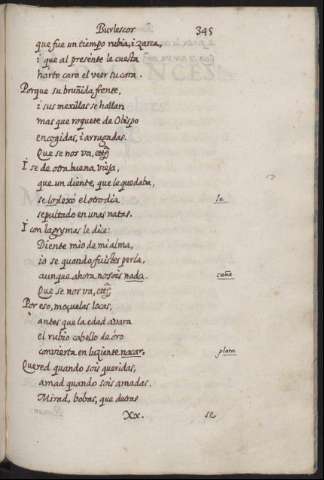 Burlescos 345
que fue un tiempo rubia, i zarca,
i que al presente le cuesta
harto caro el veer tu cara.
Porque su bruñida frente,
i sus mexillas se hallan
mas que roquete de Obispo
encogidas, i arrugadas.
Que se nos va, etc.
I se de otra buena vieja,
que un diente, que le quedaba,
se lo dexó el otro dia se
sepultado en unas natas.
I con lagrymas le dice:
Diente mio de mi alma,
io se quando fuistes perla,
aunque ahora no sois nada. caña
Que se nos va, etc.
Por eso, moçuelas locas,
antes que la edad avara
el rubio cabello de oro
convierta en luziente nacar. plata
Quered quando sois queridas,
amad quando sois amadas.
Mirad, bobas, que detras
Xx. se